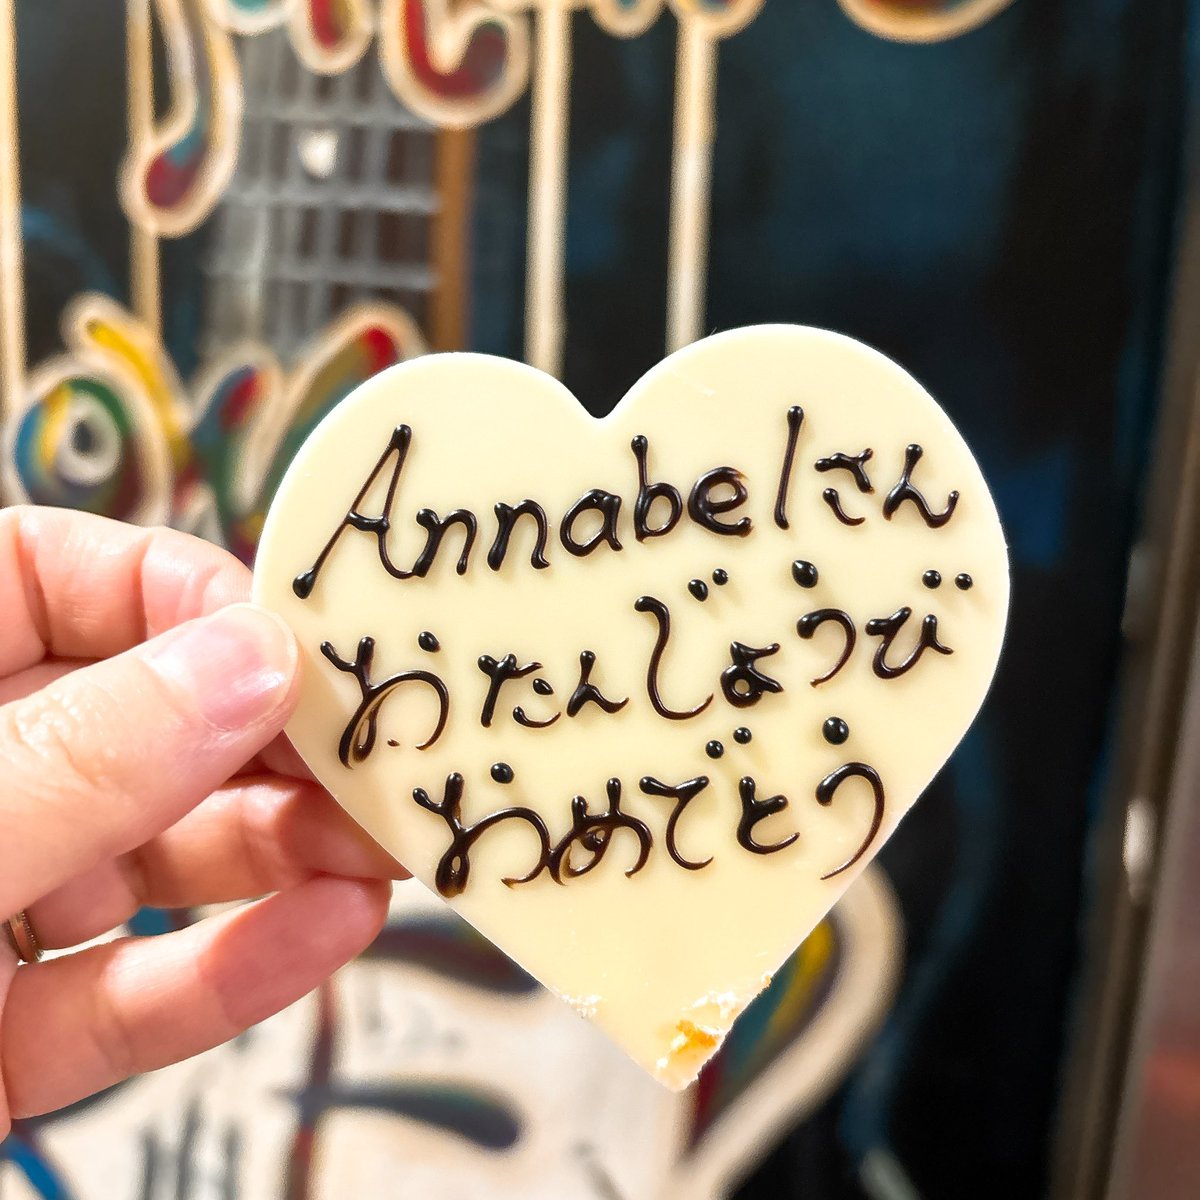 Annabelさん
おたんじょうび
おめでとう